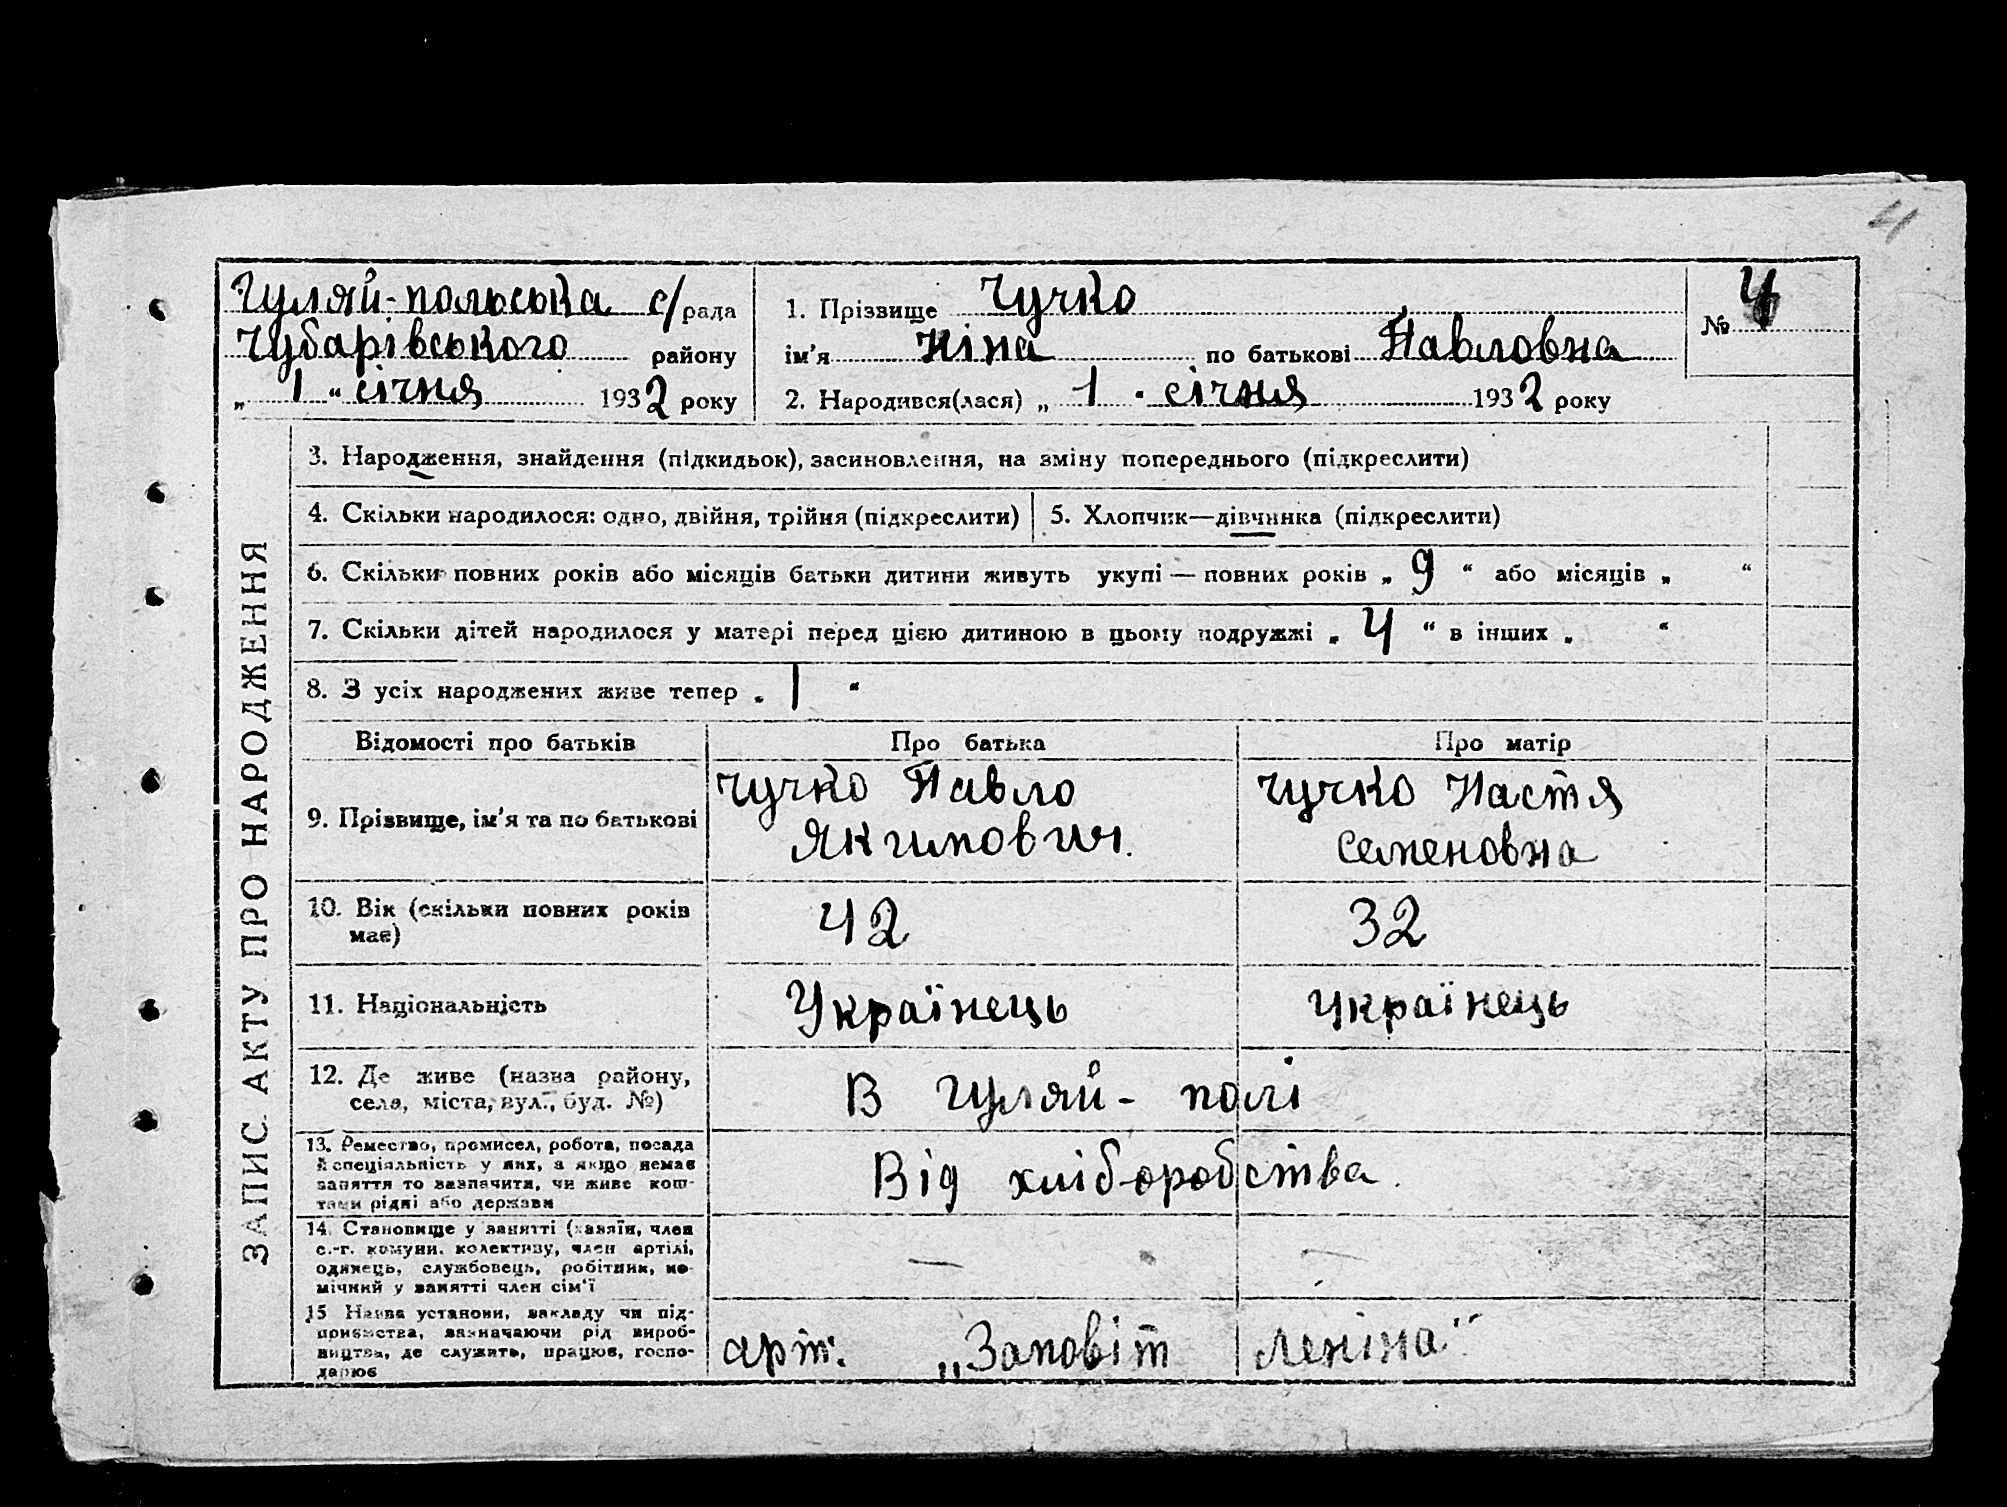 4
Гуляй-польська с/рада
Чубарівського району
„ 1 “ січня 1932 року
1. Прізвище Чучко
ім'я Ніна по батькові Павловна
2. Народився(лася) „ 1 " січня 1932 року
№ 4
ЗАПИС АКТУ ПРО НАРОДЖЕННЯ
3. Народження, знайдення (підкидьок), засиновлення, на зміну попереднього (підкреслити)
4. Скільки народилося: одно, двійня, трійня (підкреслити)
5. Хлопчик—дівчинка (підкреслити)
6. Скільки повних років або місяців батьки дитини живуть укупі — повних років „ 9 “ або місяців „ “
7. Скільки дітей народилося у матері перед цією дитиною в цьому подружжі „ 4 “ в інших „ “
8. З усіх народжених живе тепер „ 1 “
Відомості про батьків Про батька Про матір
9. Прізвище, ім'я та по батькові
Чучко Павло
Якимович.
Чучко Настя
Семеновна
10. Вік (скільки повних років
має)
42
32
11. Національність
Українець
Українець
12. Де живе (назва району,
села, міста, вул., буд. №)
В Гуляй-полі
13. Ремество, промисел, робота, посада
й спеціяльність у них, а якщо немає
заняття то зазначити, чи живе кош-
тами рідні або держави
Від хліборобства.
14. Становище у занятті (хазяїн, член
с.-г. комуни, колективу, член артілі,
одинець, службовець, робітник, по-
мічний у занятті член сім'ї
—
—
15 Назва установи, закладу чи під-
приємства, зазначаючи рід вироб-
ництва, де служить, працює, госпо-
дарює
арт. „Заповіт Леніна"